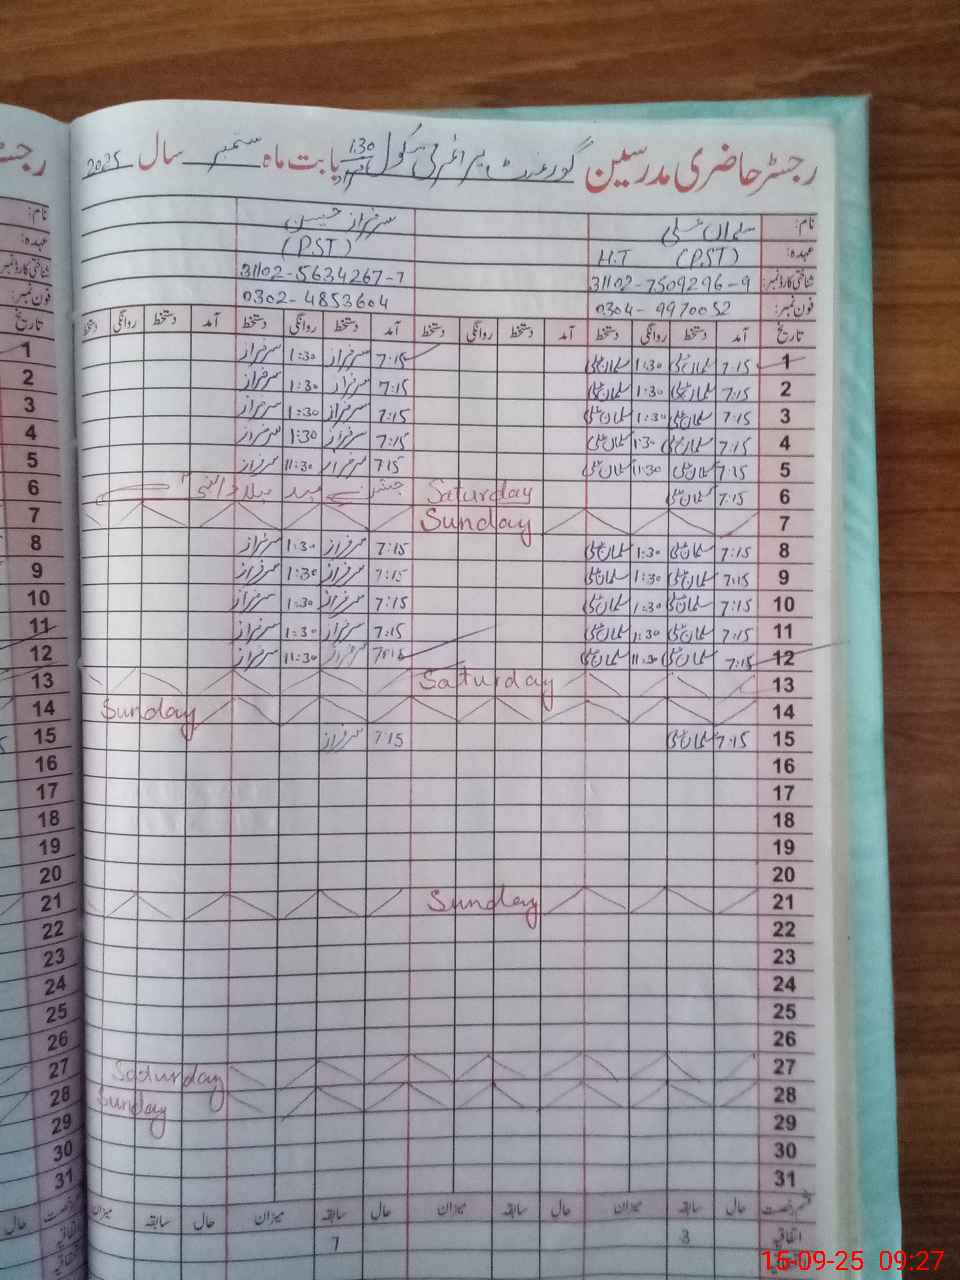 رجسٹر حاضری مدرسین گورنمنٹ پرائمری سکول 1:30 بابت ماہ ستمبر سال 2025
نام: سلمان علی سرفراز حسین
عہدہ: (PST) H.T (PST)
شناختی کارڈ نمبر: 31102-7509296-9 31102-5634267-7
فون نمبر: 0304-9970052 0302-4853604
تاریخ آمد دستخط روانگی دستخط آمد دستخط روانگی دستخط آمد دستخط روانگی دستخط آمد دستخط روانگی دستخط
1 7:15 سلمان علی 1:30 سلمان علی 7:15 سرفراز 1:30 سرفراز 1
2 7:15 سلمان علی 1:30 سلمان علی 7:15 سرفراز 1:30 سرفراز 2
3 7:15 سلمان علی 1:30 سلمان علی 7:15 سرفراز 1:30 سرفراز 3
4 7:15 سلمان علی 1:30 سلمان علی 7:15 سرفراز 1:30 سرفراز 4
5 7:15 سلمان علی 11:30 سلمان علی 7:15 سرفراز 11:30 سرفراز 5
6 7:15 سلمان علی Saturday جشن عید میلاد النبی 6
7 Sunday 7
8 7:15 سلمان علی 1:30 سلمان علی 7:15 سرفراز 1:30 سرفراز 8
9 7:15 سلمان علی 1:30 سلمان علی 7:15 سرفراز 1:30 سرفراز 9
10 7:15 سلمان علی 1:30 سلمان علی 7:15 سرفراز 1:30 سرفراز 10
11 7:15 سلمان علی 1:30 سلمان علی 7:15 سرفراز 1:30 سرفراز 11
12 7:15 سلمان علی 11:30 سلمان علی سرفراز 11:30 سرفراز 12
13 Saturday 13
14 Sunday 14
15 7:15 سلمان علی 7:15 سرفراز 15
16 16
17 17
18 18
19 19
20 20
21 Sunday 21
22 22
23 23
24 24
25 25
26 26
27 Saturday 27
28 Sunday 28
29 29
30 30
31 31
قسم رخصت حال سابقہ میزان حال سابقہ میزان حال سابقہ میزان حال سابقہ میزان
اتفاقیہ 3 7
15-09-25 09:27